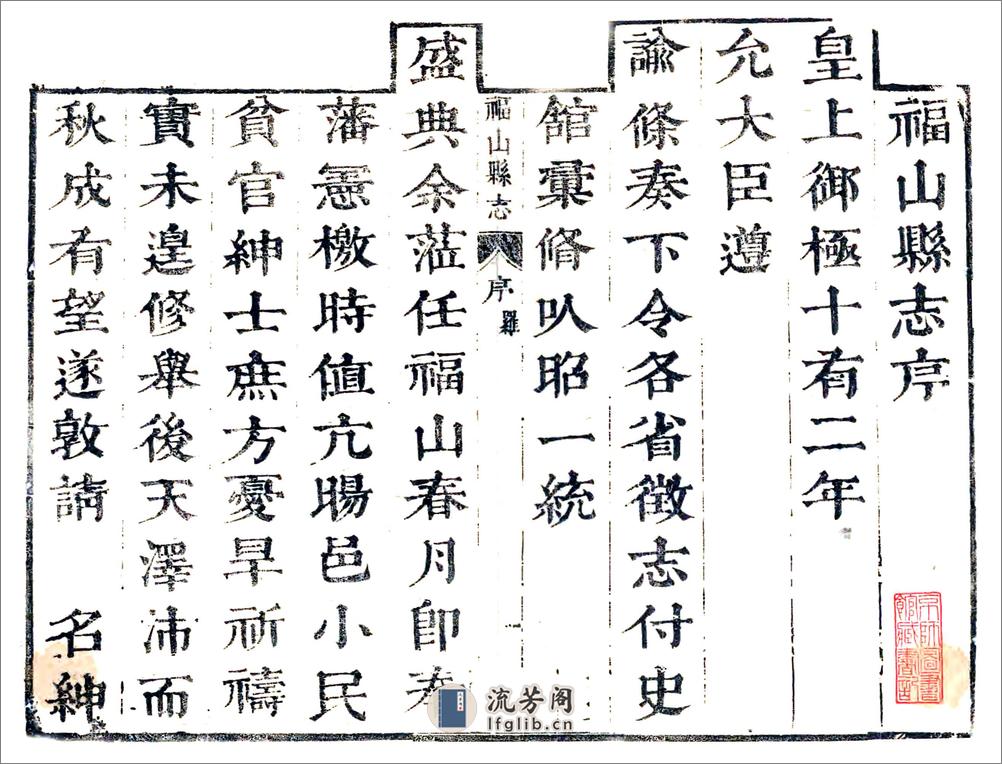 福山縣志序
皇上御極十有二年
允大臣遵
諭條奏下令各省徵志付史
館彙脩以昭一統
福山縣志
序
羅
盛典余蒞任福山春月卽奉
藩憲檄時值亢暘邑小民
貧官紳士庶方憂旱祈禱
實未遑修舉後天澤沛而
秋成有望遂敦請 名紳
京師圖書
館藏書記
流芳阁
lfglib.cn